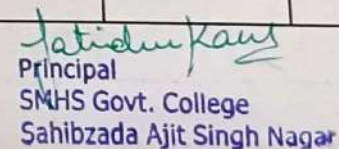 Jatinder Kaur
Principal
SMHS Govt. College
Sahibzada Ajit Singh Nagar